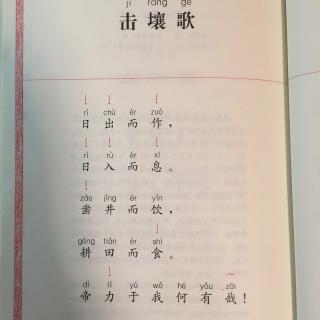 jī rǎng gē
击壤歌
rì chū ér zuò
日出而作，
rì rù ér xī
日入而息。
záo jǐng ér yǐn
凿井而饮，
gēng tián ér shí
耕田而食。
dì lì yú wǒ hé yǒu zāi
帝力于我何有哉！